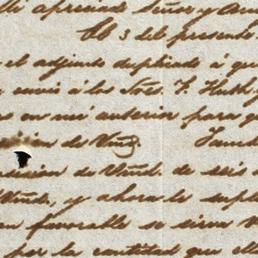 Mi apreciado Señor y Am
El 3 del presente
el adjunto duplicado á que
y envié á los Sres. F. Huth y
en mi anterior para q
de Vmd.
de Vmds. de seis
Vmds, y ahora le sup
favorable se sirva
por la cantidad que ell